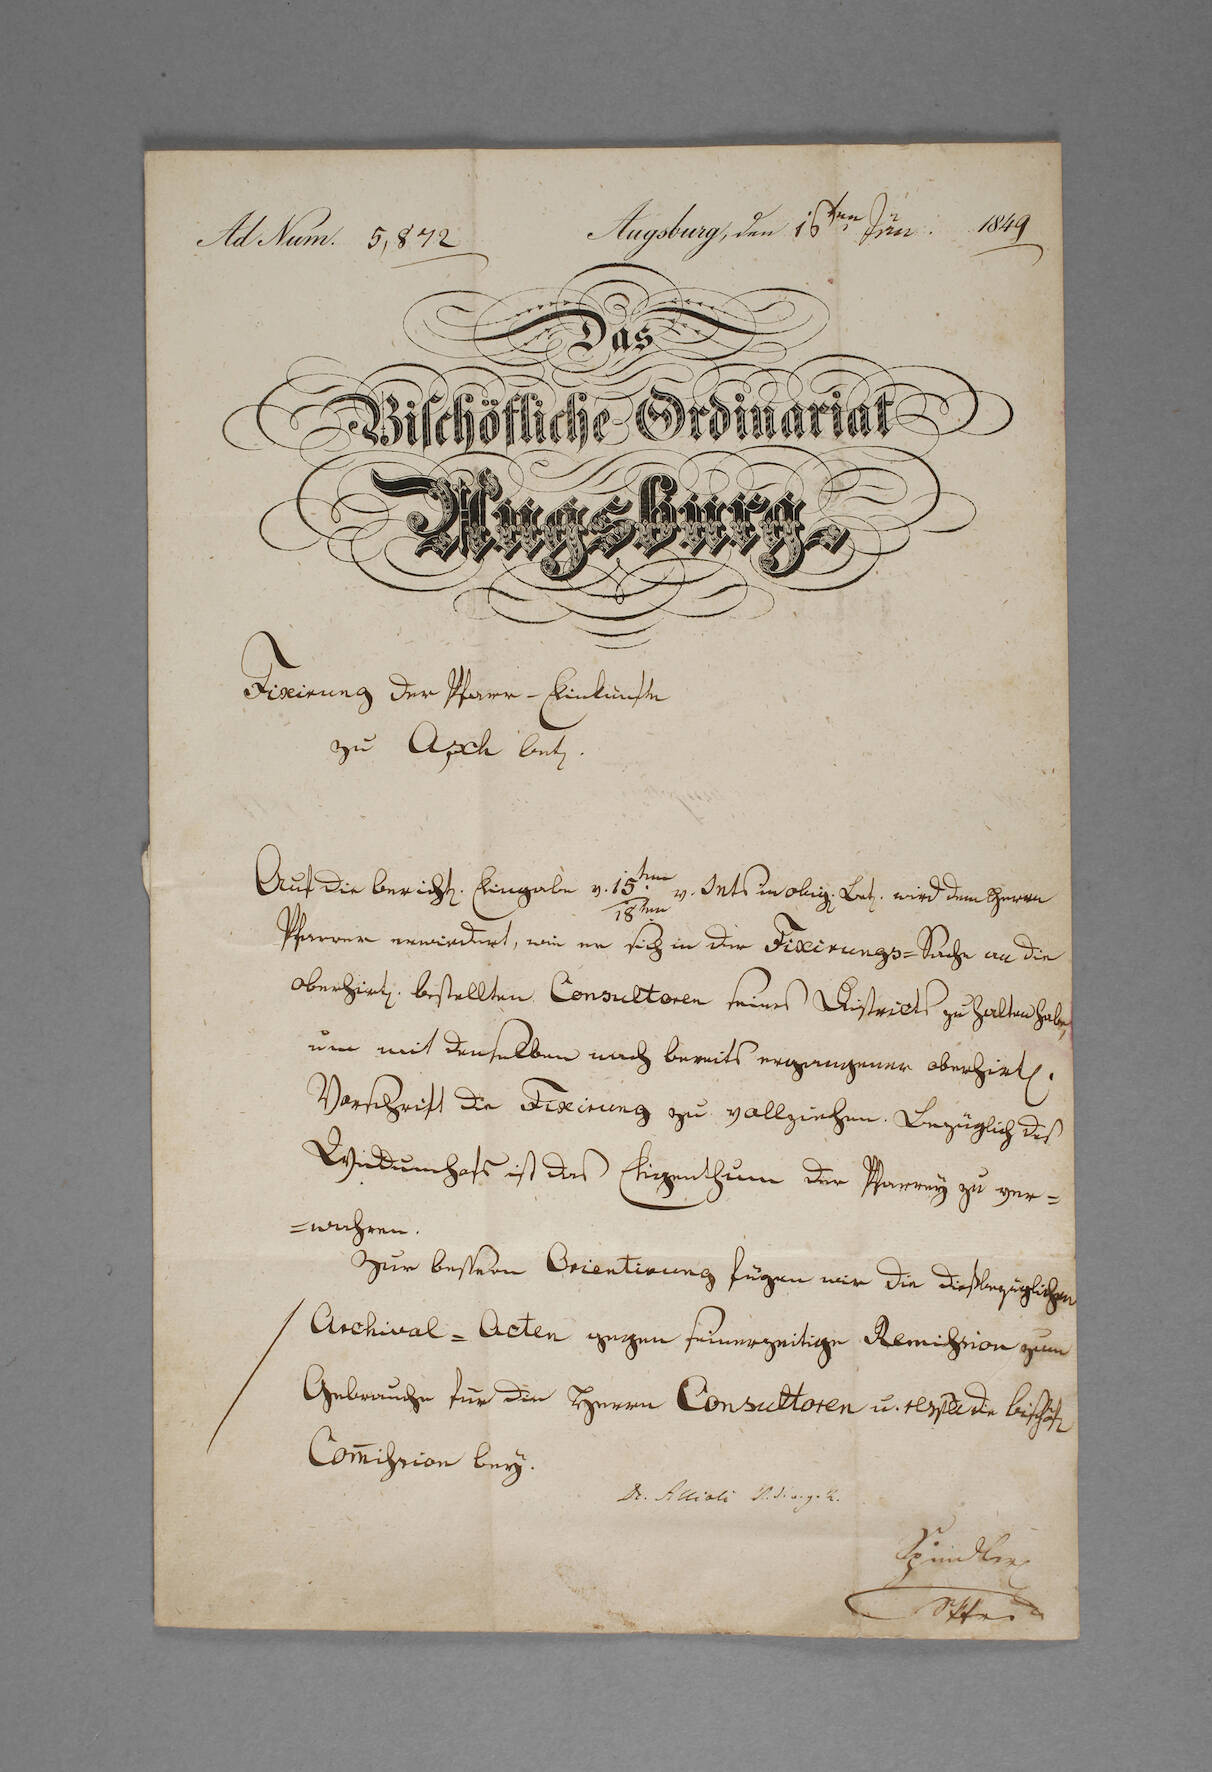 Ad Num. 5,872
Augsburg, den 16ten Jän. 1849
Das
Bischöfliche Ordinariat
Augsburg.
Fixirung der Pfarr-Einkünfte
zu Asch betr.
Auf die berichtl. Eingabe v. 15ten/18ten v. Mts in obig. Betr. wird dem Herrn
Pfarrer erwiedert, wie er sich in der Fixirungs-Sache an die
oberhirtl. bestellten Consultoren seines Districts zu halten habe,
um mit denselben nach bereits ergangener oberhirtl.
Vorschrift die Fixirung zu vollziehen. Bezüglich des
Widdumhofs ist das Eigenthum der Pfarrey zu ver=
=wahren.
Zur bessern Orientirung fügen wir die dießbezüglichen
Archival=Acten gegen seinerzeitige Remission zum
Gebrauche für die Herrn Consultoren u. die bischöfl.
Com̅ission bey.
Dr. Allioli
Spindler